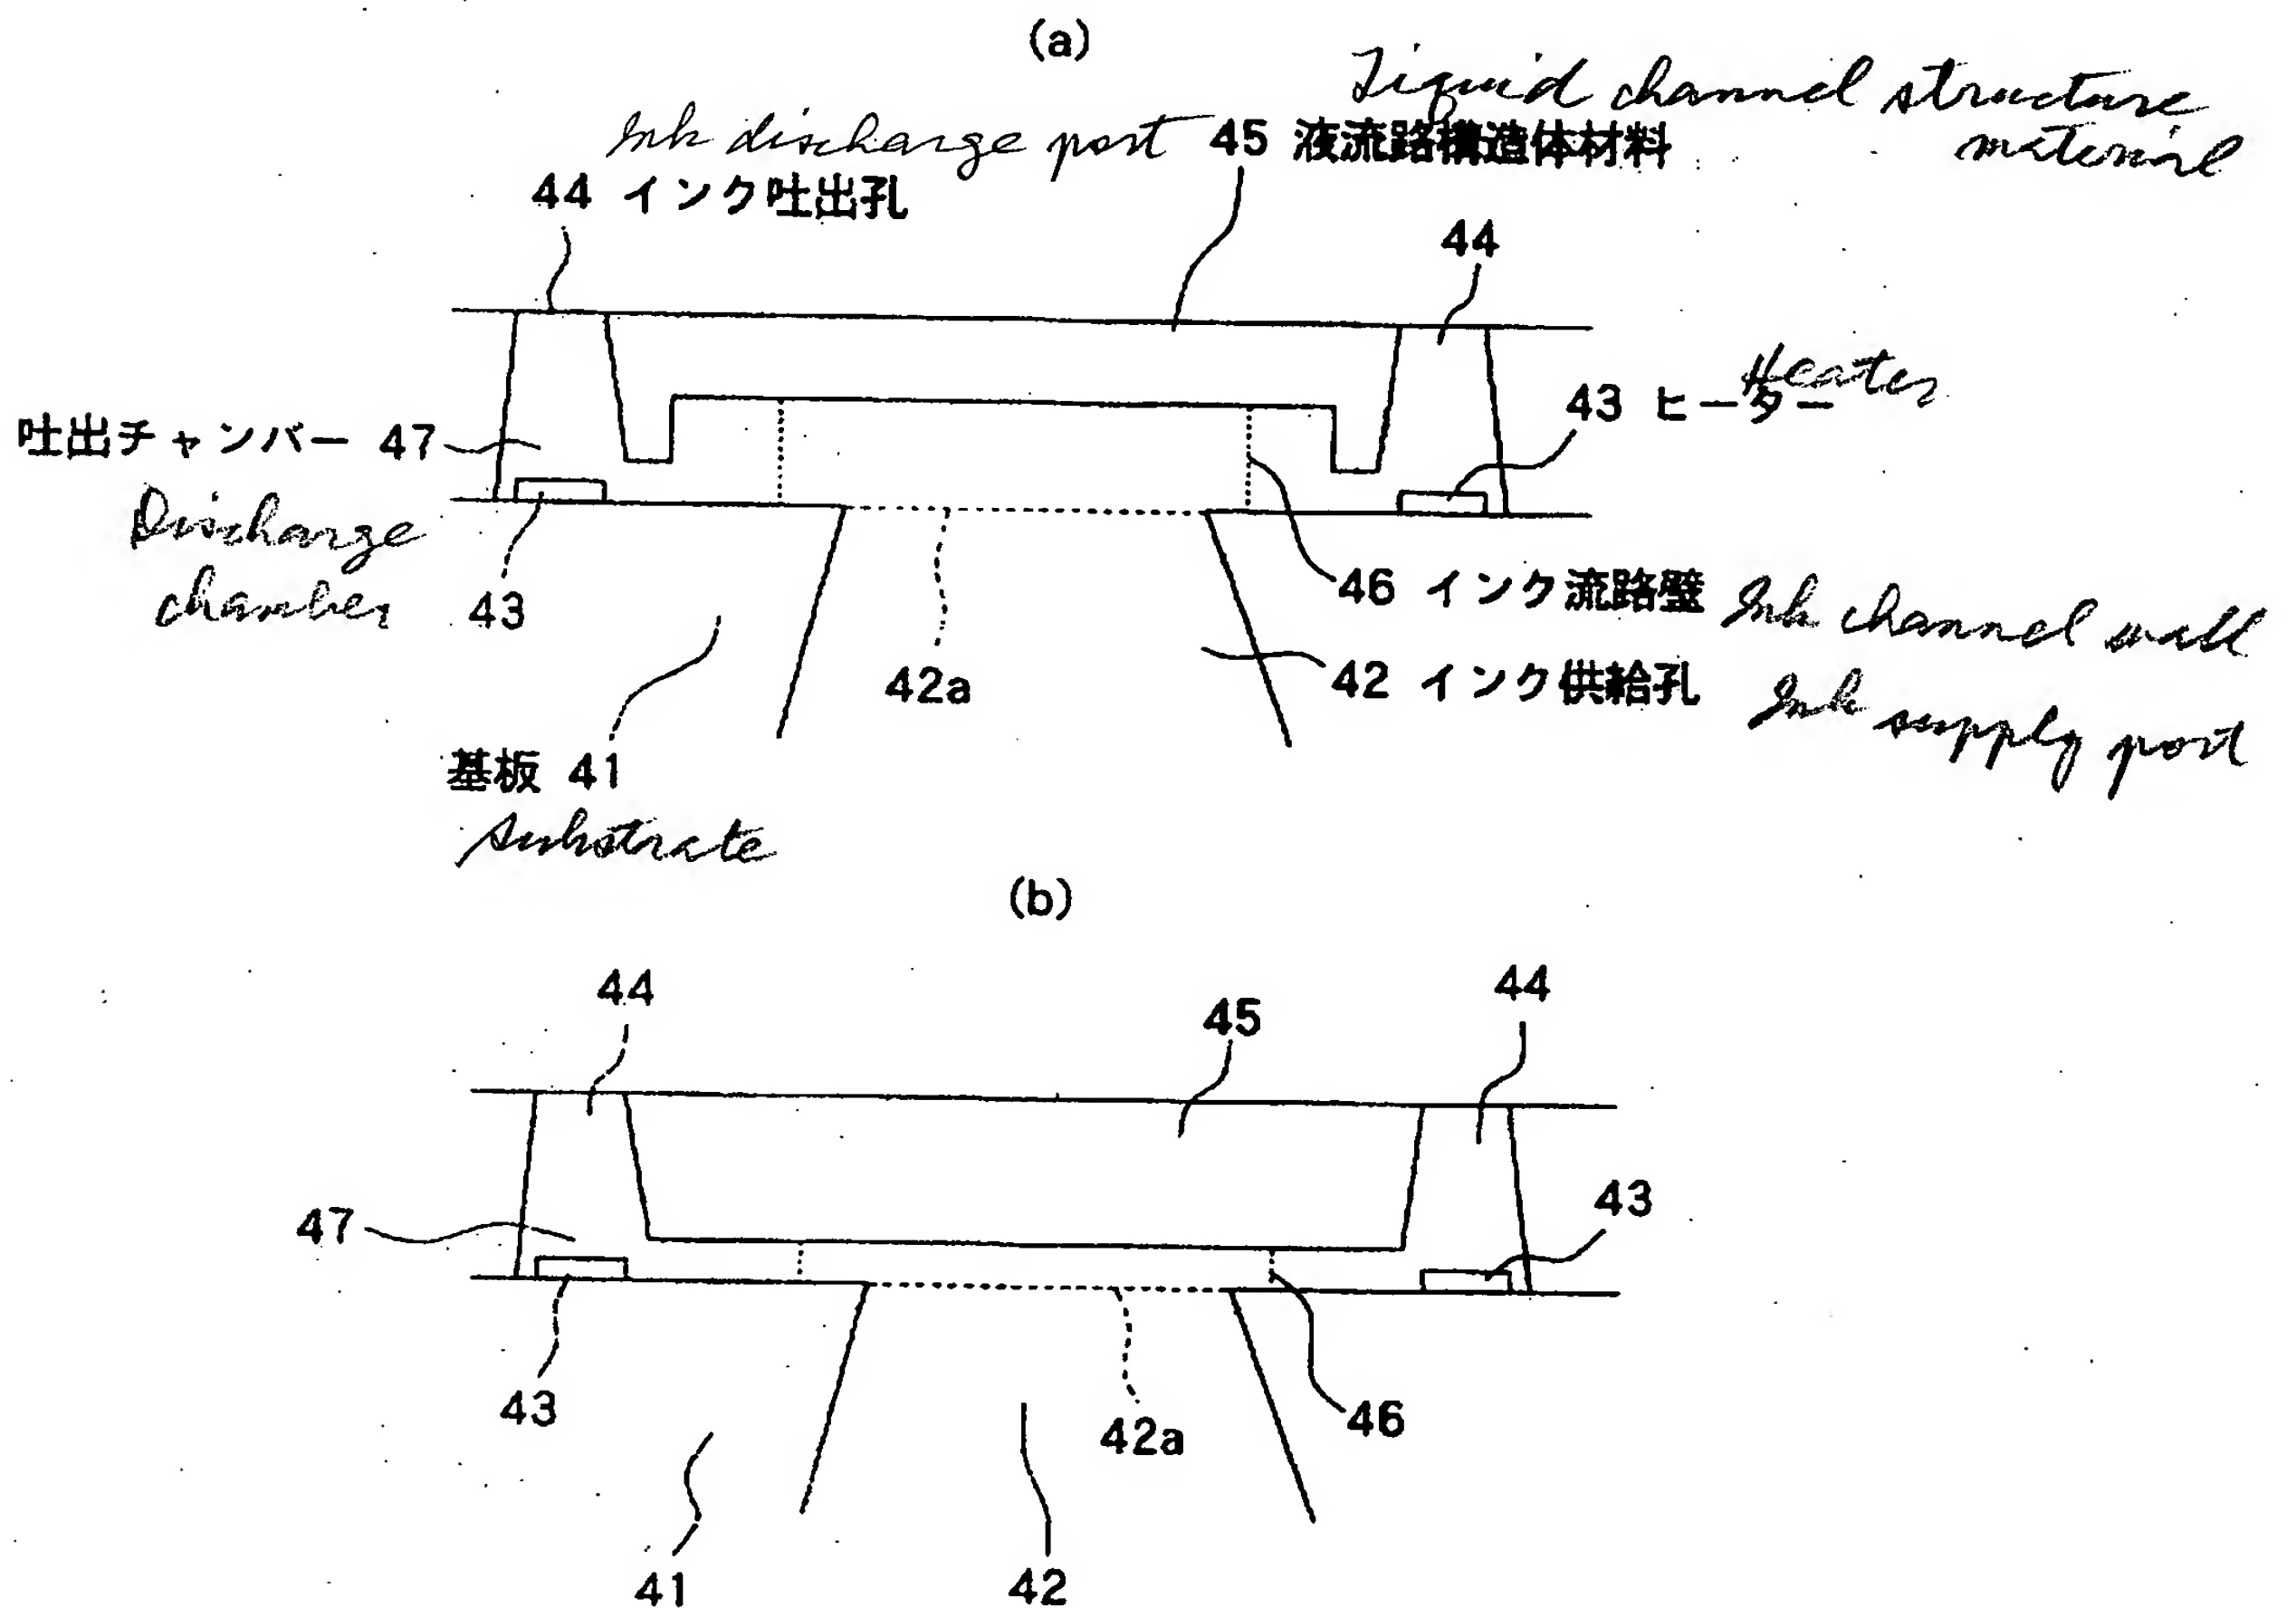 (a)
Liquid channel structure
material
Ink discharge port
45 液流路構造体材料
44 インク吐出孔
44
Heater
43 ヒーター
吐出チャンバー 47
Discharge
chamber
43
46 インク流路壁 Ink channel wall
42a
42 インク供給孔 Ink supply port
基板 41
substrate
(b)
44
45
44
47
43
43
42a
46
41
42